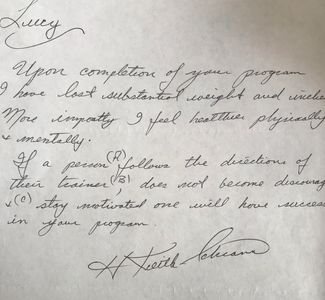 Lucy
Upon completion of your program
I have lost substantial weight and inches
More impoatly I feel healthier physically
& mentally.
If a person (A) follows the directions of
their trainer, (B) does not become discourag
& (C) stay motivated one will have success
in your program.
H Keith